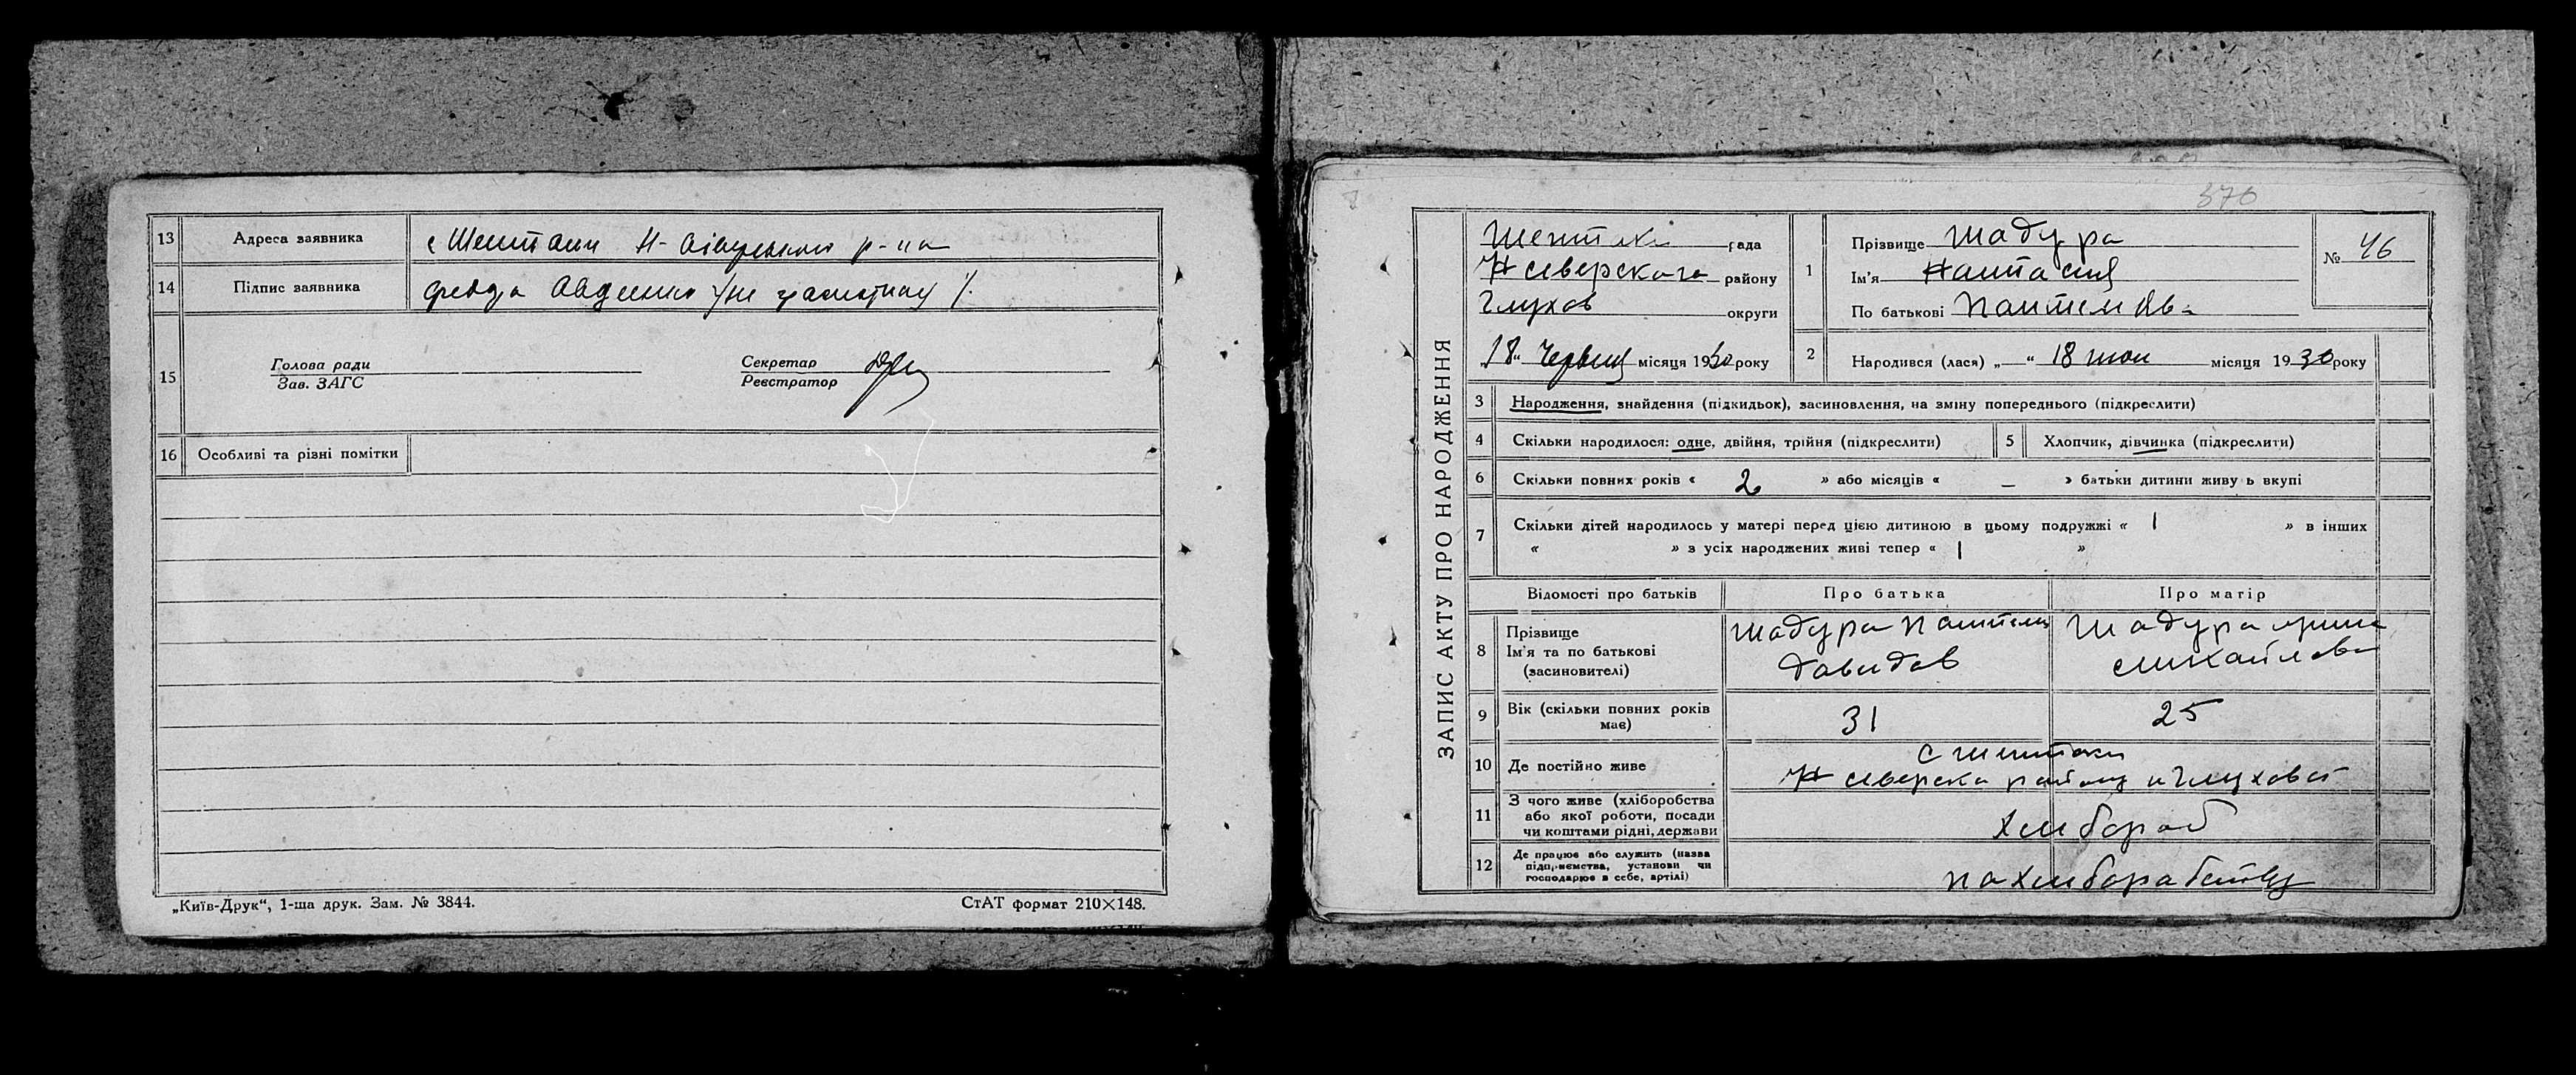 13 Адреса заявника с Шептаки Н-Сіверського р-на
14 Підпис заявника Авдеенко /не грамотный/.
15 Голова ради
Зав. ЗАГС
Секретар
Реєстратор
16 Особливі та різні помітки
„Київ-Друк“, 1-ша друк. Зам. № 3844.
СтАТ формат 210×148.
370
ЗАПИС АКТУ ПРО НАРОДЖЕННЯ
Шептаки рада
Н северскага району
Глухов округи
„18“ Червня місяця 1930 року
1 Прізвище Шадура
Ім'я Настасия
По батькові
№ 46
2 Народився (лася) „ “ 18 июн місяця 1930 року
3 Народження, знайдення (підкидьок), засиновлення, на зміну попереднього (підкреслити)
4 Скільки народилося: одне, двійня, трійня (підкреслити)
5 Хлопчик, дівчинка (підкреслити)
6 Скільки повних років « 2 » або місяців « – » батьки дитини живуть вкупі
7 Скільки дітей народилось у матері перед цією дитиною в цьому подружжі « 1 » в інших
« » з усіх народжених живі тепер « 1 »
Відомості про батьків Про батька Про матір
8 Прізвище
Ім'я та по батькові
(засиновителі)
Шадура
Давидов
Шадура
Михайлова
9 Вік (скільки повних років має) 31 25
10 Де постійно живе с Шептаки
Н северска району
11 З чого живе (хліборобства
або якої роботи, посади
чи коштами рідні, держави
Хлебороб
12 Де працює або служить (назва
підприємства, установи чи
господарює в себе, артілі)
па хлебарабству